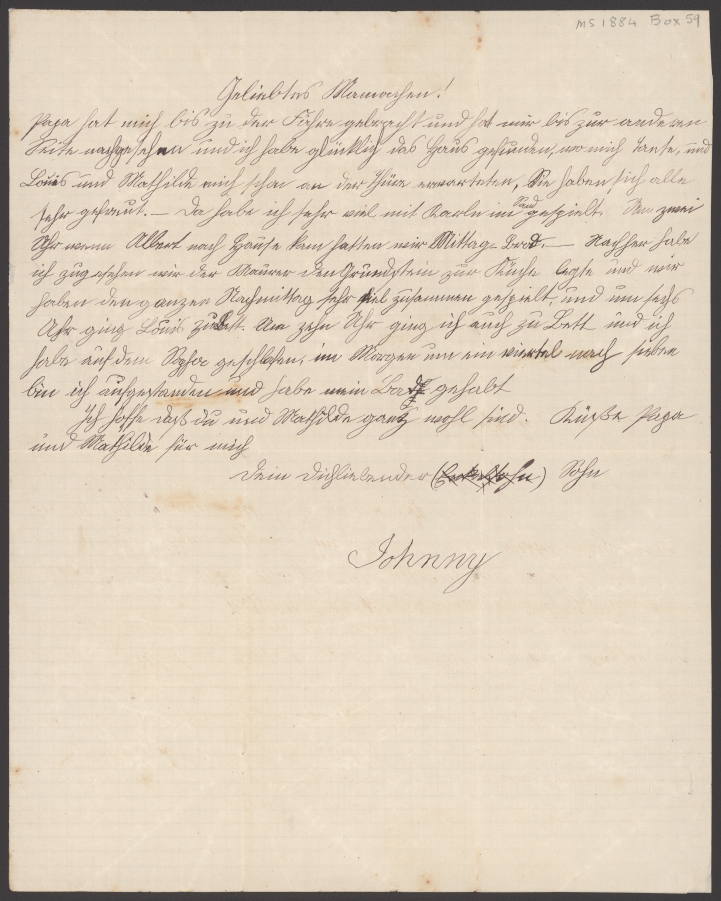 MS 1884 Box 59
Geliebtes Mamachen!
Papa hat mich bis zu der Föhre gebracht und hat mir bis zur anderen
Seite nachgesehen und ich habe glücklich das Haus gefunden, wo mich Tante, und
Louis und Mathilde mich schon an der Thüre erwarteten, Sie haben sich alle
sehr gefreut. — Da habe ich sehr viel mit Karle im Sand gespielt. Um zwei
Uhr wenn Albert nach Hause kam hatten wir Mittag- — Nachher habe
ich zugesehen wir der Maurer den Grundstein zur Küche legte und wir
haben den ganzen Nachmittag sehr viel zusammen gespielt, und um sechs
Uhr ging Louis zu Bett. Um zehn Uhr ging ich auch zu Bett und ich
habe auf dem Sopha geschlafen, im Morgen um ein viertel nach sieben
bin ich aufgestanden und habe mein Bad gehabt
Ich hoffe daß du und Mathilde gantz wohl sind. Küsse Papa
und Mathilde für mich
Dein Dichliebender Sohn
Johnny